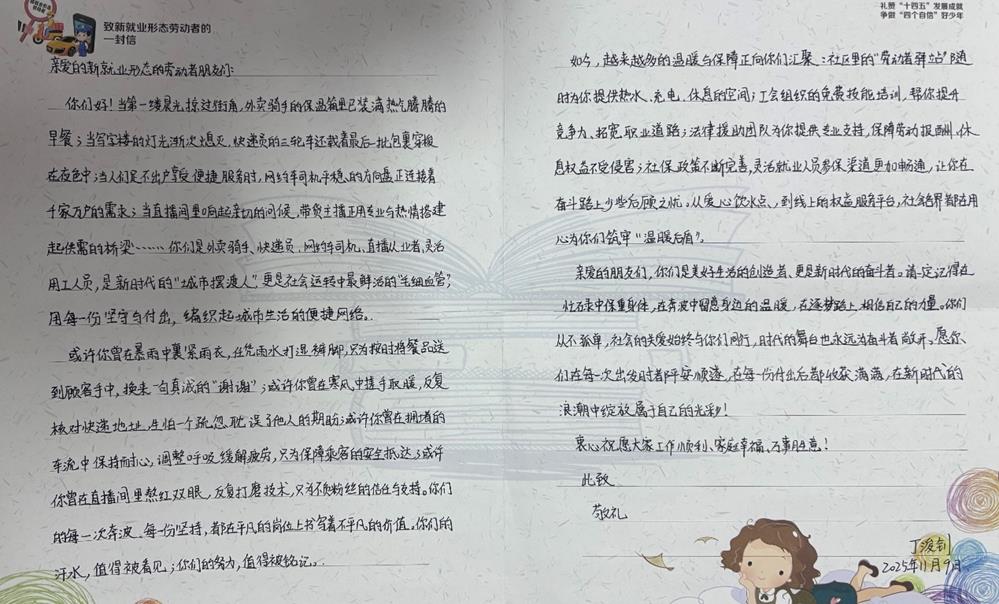 致新就业形态劳动者的
一封信
亲爱的新就业形态的劳动者朋友们：
你们好！当第一缕晨光掠过街角，外卖骑手的保温箱里已装满热气腾腾的
早餐；当写字楼的灯光渐次熄灭，快递员的三轮车还载着最后一批包裹穿梭
在夜色中；当人们足不出户享受便捷服务时，网约车司机平稳的方向盘正连接着
千家万户的需求；当直播间里响起亲切的问候，带货主播正用专业与热情搭建
起供需的桥梁……你们是外卖骑手、快递员、网约车司机、直播从业者、灵活
用工人员，是新时代的“城市摆渡人”，更是社会运转中最鲜活的“毛细血管”，
用每一份坚守与付出，编织起城市生活的便捷网络。
或许你曾在暴雨中裹紧雨衣，任凭雨水打湿裤脚，只为按时将餐品送
到顾客手中，换来一句真诚的“谢谢”；或许你曾在寒风中搓手取暖，反复
核对快递地址，生怕一个疏忽耽误了他人的期盼；或许你曾在拥堵的
车流中保持耐心，调整呼吸缓解疲劳，只为保障乘客的安全抵达；或许
你曾在直播间里熬红双眼，反复打磨技术，只为不负粉丝的信任与支持。你们
的每一次奔波、每一份坚持，都在平凡的岗位上书写着不平凡的价值。你们的
汗水，值得被看见；你们的努力，值得被铭记。
礼赞“十四五”发展成就
争做“四个自信”好少年
如今，越来越多的温暖与保障正向你们汇聚：社区里的“劳动者驿站”随
时为你提供热水、充电、休息的空间；工会组织的免费技能培训，帮你提升
竞争力、拓宽职业道路；法律援助团队为你提供专业支持，保障劳动报酬、休
息权益不受侵害；社保政策不断完善，灵活就业人员参保渠道更加畅通，让你在
奋斗路上少些后顾之忧。从爱心饮水点，到线上的权益服务平台，社会各界都在用
心为你们筑牢“温暖后盾”。
亲爱的朋友们，你们是美好生活的创造者、更是新时代的奋斗者。请一定记得在
忙碌中保重身体，在奔波中留意身边的温暖，在逐梦路上相信自己的力量。你们
从不孤单，社会的关爱始终与你们同行，时代的舞台也永远为奋斗者敞开。愿你
们在每一次出发时都平安顺遂，在每一份付出后都收获满满，在新时代的
浪潮中绽放属于自己的光彩！
衷心祝愿大家工作顺利、家庭幸福、万事胜意！
此致
敬礼
丁浚钊
2025年11月9日